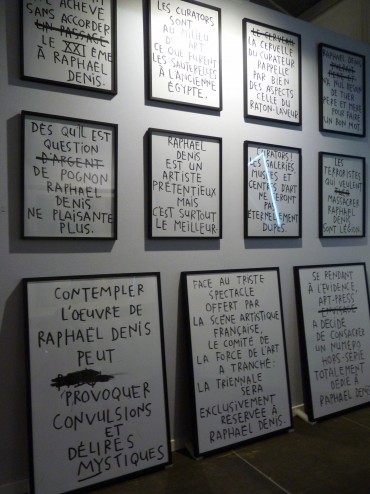 ACHEVÉ
SANS ACCORDER
UN PASSAGE
LE XXI ÈME
À RAPHAËL
DENIS.
LES CURATORS
SONT
AU MILIEU
D'ART
CE QUE FURENT
LES SAUTERELLES
À L'ANCIENNE
ÉGYPTE.
LE CERVEAU
LA CERVELLE
DU CURATEUR
RAPPELLE
PAR BIEN
DES ASPECTS
CELLE DU
RATON-LAVEUR
RAPHAËL DENIS
DE TUER
PÈRE ET MÈRE
POUR FAIRE
UN BON MOT.
DÈS QU'IL EST
QUESTION
D'ARGENT
DE POGNON
RAPHAËL
DENIS
NE PLAISANTE
PLUS.
RAPHAËL
DENIS
EST UN
ARTISTE
PRÉTENTIEUX
MAIS
C'EST SURTOUT
LE MEILLEUR.
CURATORS!
LES GALERIES,
MUSÉES ET
CENTRES D'ART
NE SERONT
PAS
ÉTERNELLEMENT
DUPES.
LES
TERRORISTES
QUI VEULENT
MASSACRER
RAPHAËL
DENIS
SONT LÉGION.
CONTEMPLER
L'OEUVRE DE
RAPHAËL DENIS
PEUT
PROVOQUER
CONVULSIONS
ET
DÉLIRES
MYSTIQUES
FACE AU TRISTE
SPECTACLE
OFFERT PAR
LA SCÈNE ARTISTIQUE
FRANÇAISE,
LE COMITÉ DE
LA FORCE DE L'ART
A TRANCHÉ:
LA TRIENNALE
SERA
EXCLUSIVEMENT
RÉSERVÉE À
RAPHAËL DENIS.
SE RENDANT
À L'ÉVIDENCE,
ART-PRESS
ENVISAGE
A DÉCIDÉ
DE CONSACRER
UN NUMÉRO
HORS-SÉRIE
TOTALEMENT
DÉDIÉ À
RAPHAËL DENIS.